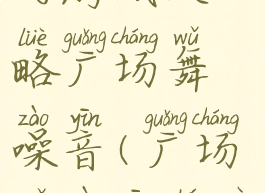 lüè guǎng cháng wǔ
略广场舞
zào yīn guǎng cháng
噪音(广场